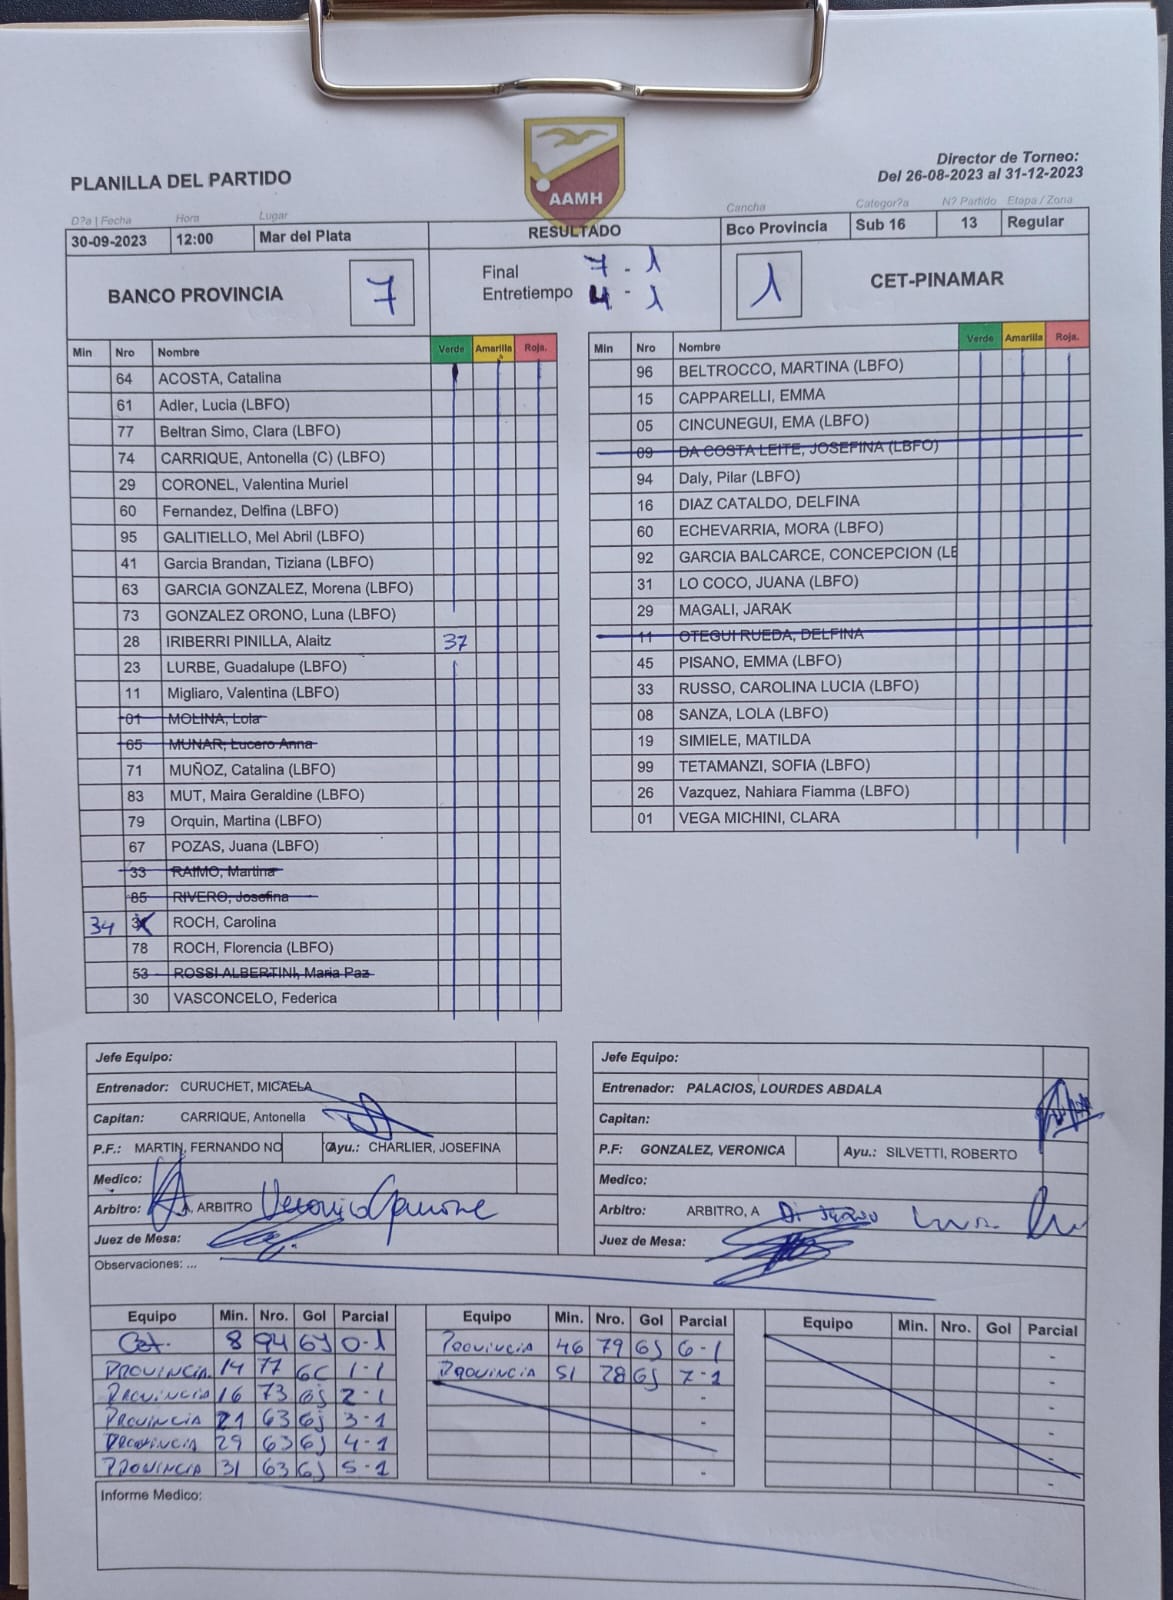 AAMH
PLANILLA DEL PARTIDO
Director de Torneo:
Del 26-08-2023 al 31-12-2023
D?a | Fecha Hora Lugar Cancha Categor?a N? Partido Etapa / Zona
30-09-2023 12:00 Mar del Plata RESULTADO Bco Provincia Sub 16 13 Regular
BANCO PROVINCIA 7 Final 7 - 1 1 CET-PINAMAR
Entretiempo 4 - 1
Min Nro Nombre Verde Amarilla Roja.
64 ACOSTA, Catalina
61 Adler, Lucia (LBFO)
77 Beltran Simo, Clara (LBFO)
74 CARRIQUE, Antonella (C) (LBFO)
29 CORONEL, Valentina Muriel
60 Fernandez, Delfina (LBFO)
95 GALITIELLO, Mel Abril (LBFO)
41 Garcia Brandan, Tiziana (LBFO)
63 GARCIA GONZALEZ, Morena (LBFO)
73 GONZALEZ ORONO, Luna (LBFO)
28 IRIBERRI PINILLA, Alaitz 37
23 LURBE, Guadalupe (LBFO)
11 Migliaro, Valentina (LBFO)
01 MOLINA, Lola
65 MUNAR, Lucero Anna
71 MUÑOZ, Catalina (LBFO)
83 MUT, Maira Geraldine (LBFO)
79 Orquin, Martina (LBFO)
67 POZAS, Juana (LBFO)
33 RAIMO, Martina
85 RIVERO, Josefina
34 ROCH, Carolina
78 ROCH, Florencia (LBFO)
53 ROSSI ALBERTINI, Maria Paz
30 VASCONCELO, Federica
Min Nro Nombre Verde Amarilla Roja.
96 BELTROCCO, MARTINA (LBFO)
15 CAPPARELLI, EMMA
05 CINCUNEGUI, EMA (LBFO)
09 DA COSTA LEITE, JOSEFINA (LBFO)
94 Daly, Pilar (LBFO)
16 DIAZ CATALDO, DELFINA
60 ECHEVARRIA, MORA (LBFO)
92 GARCIA BALCARCE, CONCEPCION (LE
31 LO COCO, JUANA (LBFO)
29 MAGALI, JARAK
11 OTEGUI RUEDA, DELFINA
45 PISANO, EMMA (LBFO)
33 RUSSO, CAROLINA LUCIA (LBFO)
08 SANZA, LOLA (LBFO)
19 SIMIELE, MATILDA
99 TETAMANZI, SOFIA (LBFO)
26 Vazquez, Nahiara Fiamma (LBFO)
01 VEGA MICHINI, CLARA
Jefe Equipo:
Entrenador: CURUCHET, MICAELA
Capitan: CARRIQUE, Antonella
P.F.: MARTIN, FERNANDO NO Ayu.: CHARLIER, JOSEFINA
Medico:
Arbitro: A, ARBITRO Veronica
Juez de Mesa:
Jefe Equipo:
Entrenador: PALACIOS, LOURDES ABDALA
Capitan:
P.F: GONZALEZ, VERONICA Ayu.: SILVETTI, ROBERTO
Medico:
Arbitro: ARBITRO, A
Juez de Mesa:
Observaciones: ...
Equipo Min. Nro. Gol Parcial
Cet. 8 94 GJ 0-1
PROVINCIA 14 77 GC 1-1
PROVINCIA 16 73 GJ 2-1
PROVINCIA 21 63 GJ 3-1
PROVINCIA 29 63 GJ 4-1
PROVINCIA 31 63 GJ 5-1
Equipo Min. Nro. Gol Parcial
PROVINCIA 46 79 GJ 6-1
PROVINCIA 51 28 GJ 7-1
-
-
-
-
Equipo Min. Nro. Gol Parcial
-
-
-
-
-
-
Informe Medico: